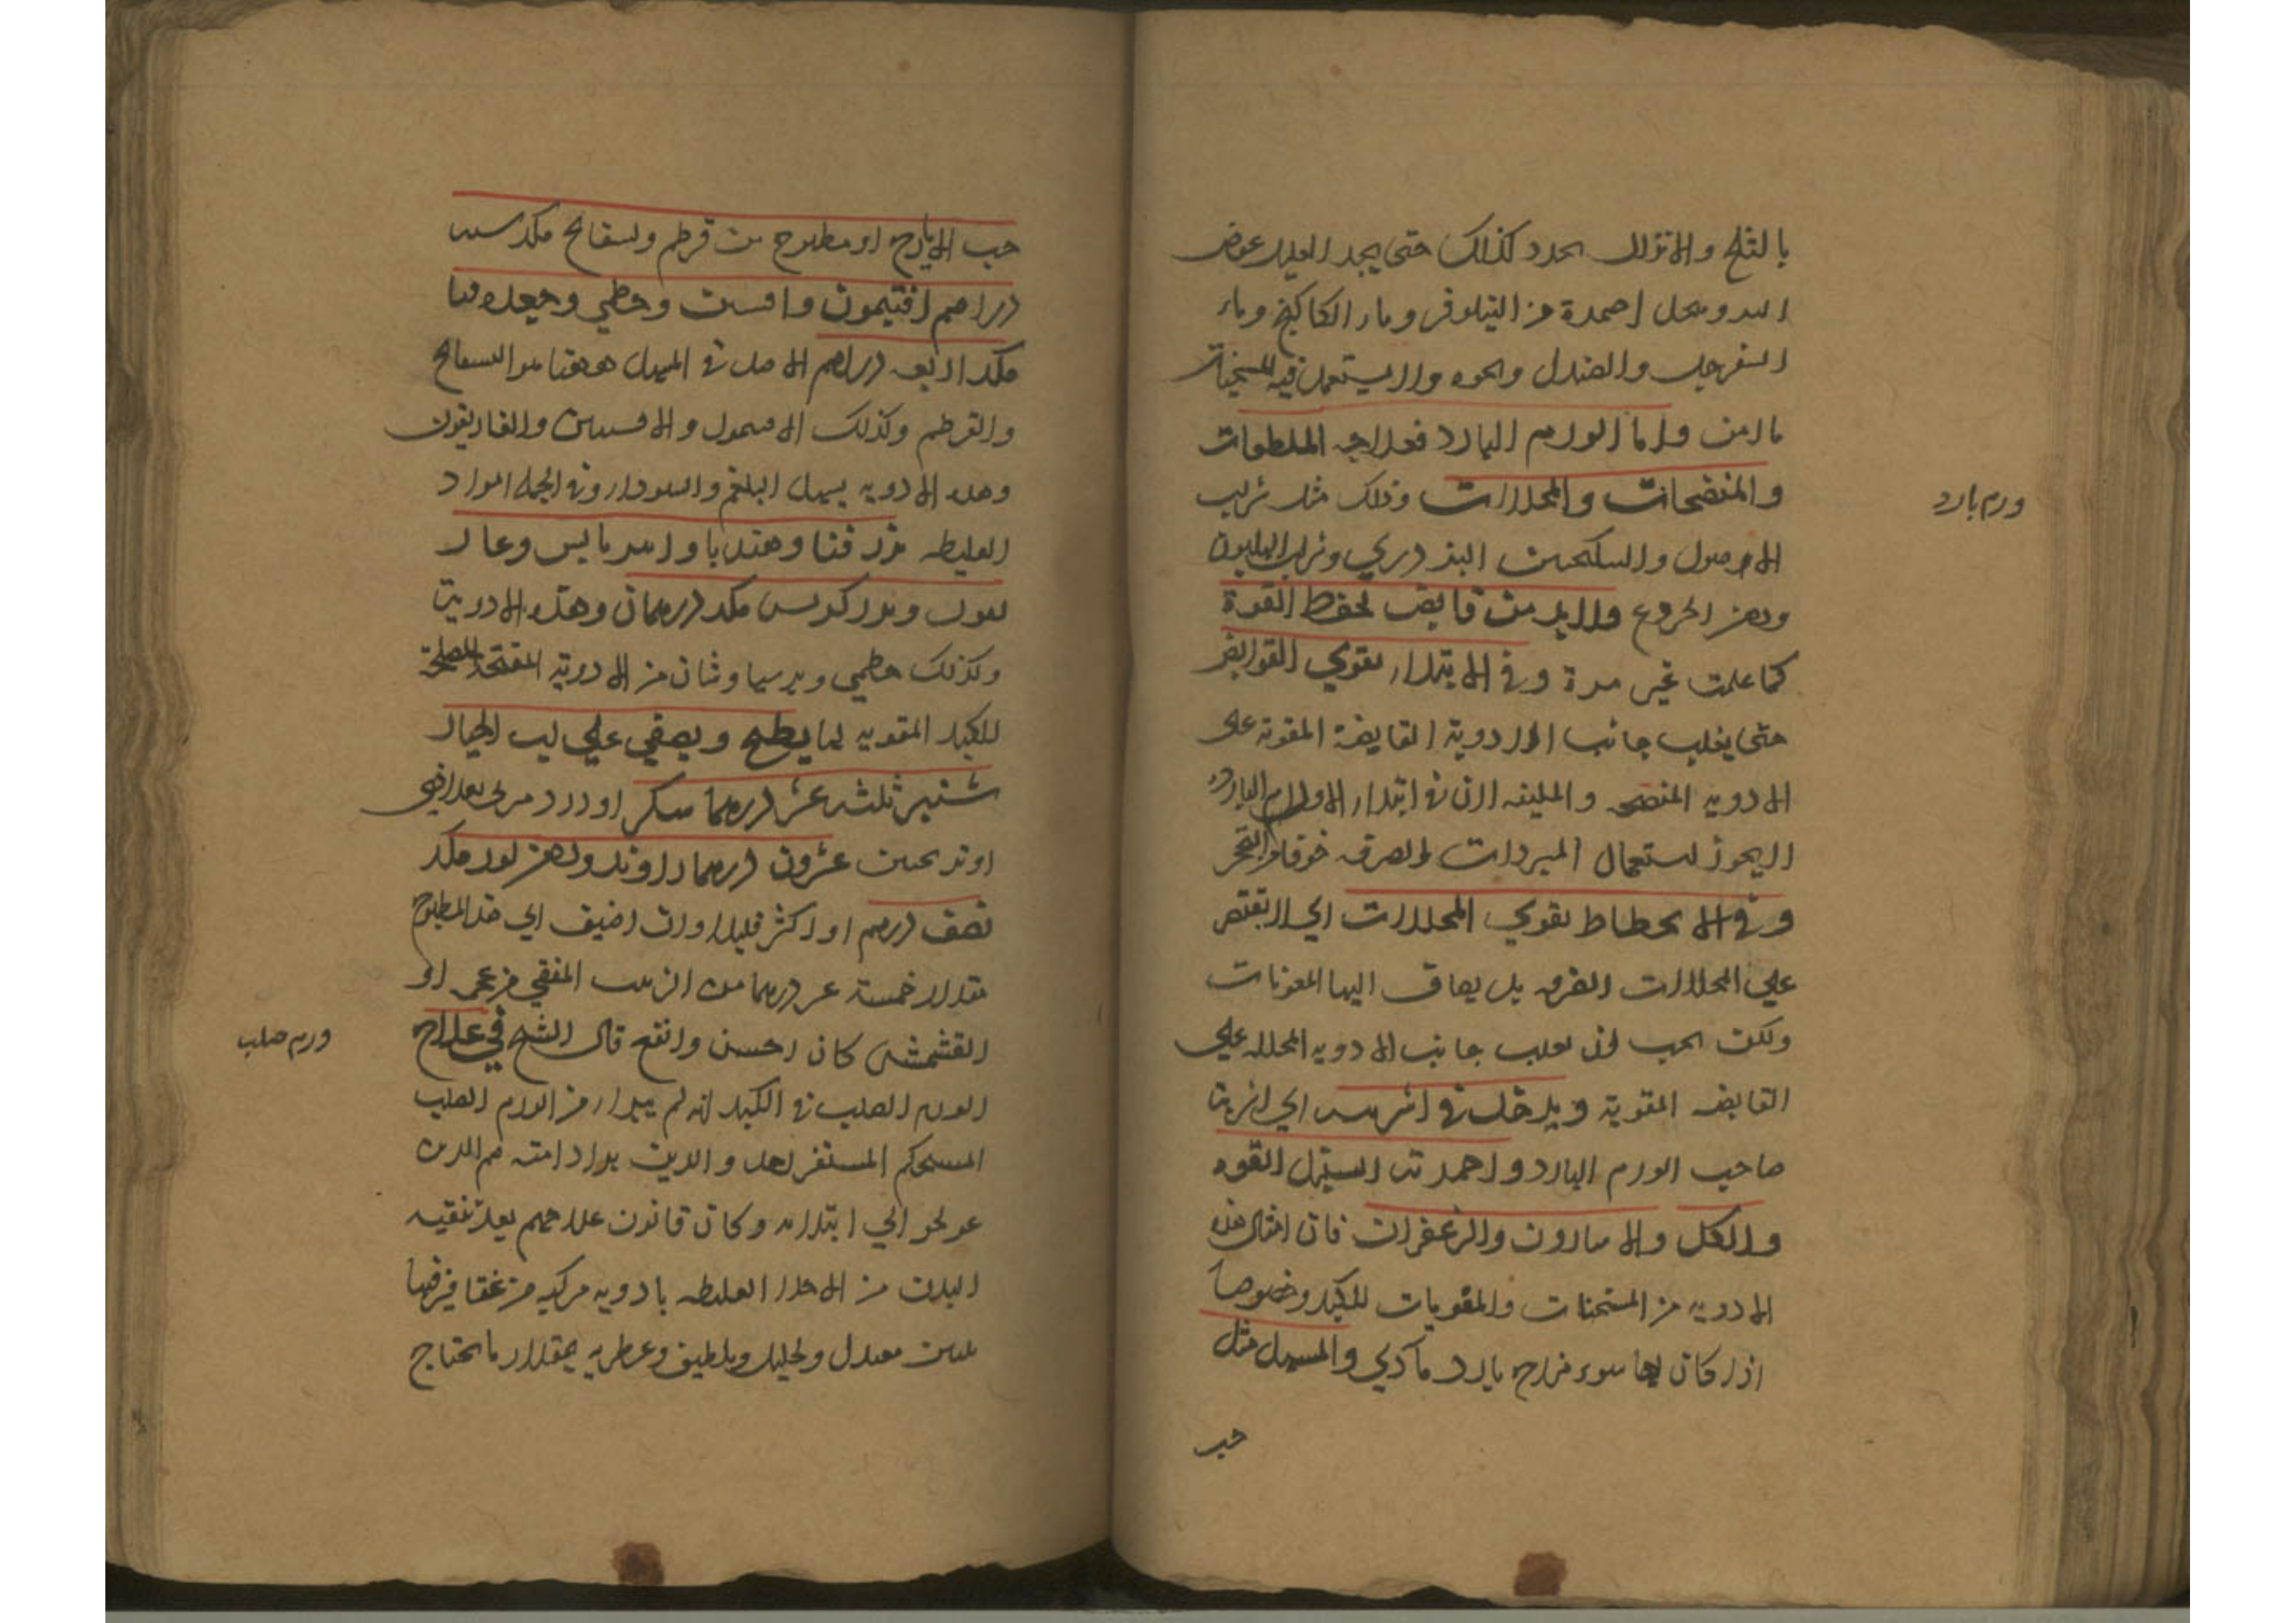 بالثلج والانزال كذلك حتى يجد العليل عوض
من النيلوفر وماء الكاكنج وماء
السفرجل والصندل ونحوه ولا يستعمل فيه المسخنات
واما الورم البارد فعلاجه الملطفات
والمنضجات والمحللات وذلك مثل شراب
ورم بارد
الاصول والسكنجبين البزوري وشراب
ودهن الخروع ولا بد من قابض لحفظ القوة
كما علمت غير مرة وفي الابتداء يقوي القوابض
حتى يغلب جانب الادوية القابضة المقوية على
الادوية المنضجة والملينة لان في ابتداء الاورام الباردة
لا يجوز استعمال المبردات الصرفه خوفا من التحجر
وفي الانحطاط يقوي المحللات اي لا يقتصر
علي المحللات الصرفه بل يضاف اليها المقويات
ولكن يجب ان يغلب جانب الادويه المحلله علي
القابضه المقوية ويدخل في اشربته اي اشربة
صاحب الورم البارد واضمدته السنبل الفوه
والاسارون والزعفران فان امثال هذه
الادويه من المسخنات والمقويات للكبد وخصوصا
اذا كان لها سوء مزاج بارد مادي والمسهل مثل
حب
حب الايارج او مطبوخ من قرطم وبسفايج مكد ستة
دراهم افتيمون وافسنت
مكد اربعه دراهم الاصل في المسهل ههنا هو البسفايج
والقرطم وكذلك الافتيمون والافسنتين والغاريقون
وهذه الادويه يسهل البلغم والسوداء وفي الجمله المواد
الغليظه بزر قثا وهندبا
وبزر كرفس مكد درهمان وهذه الادوية
وكذلك من الادوية المفتحة المصلحة
للكبد المقويه لها يطبخ ويصفي علي لب الخيار
شنبر ثلثه عشر درهما سكر
او ترنجبين عشرون درهما راوند ودهن لوز مكد
نصف درهم او اكثر قليلا وان اضيف الي هذا المطبوخ
مقدار خمسة عشر درهما من الزبيب المنقي من عجمه او
القشمش كان احسن وانفع قال الشيخ في علاج
ورم صلب
الورم الصلب في الكبد انه لم يبرا من الورم الصلب
المستحكم المستقر احد والذين برا منه هم الذين
عولجوا في ابتدائه وكان قانون علاجهم بعد تنقيه
البدن من الاخلاط الغليظه بادويه مركبه من عقاقير فيها
تليين معتدل وتحليل وتلطيف وعطريه بمقدار ما يحتاج